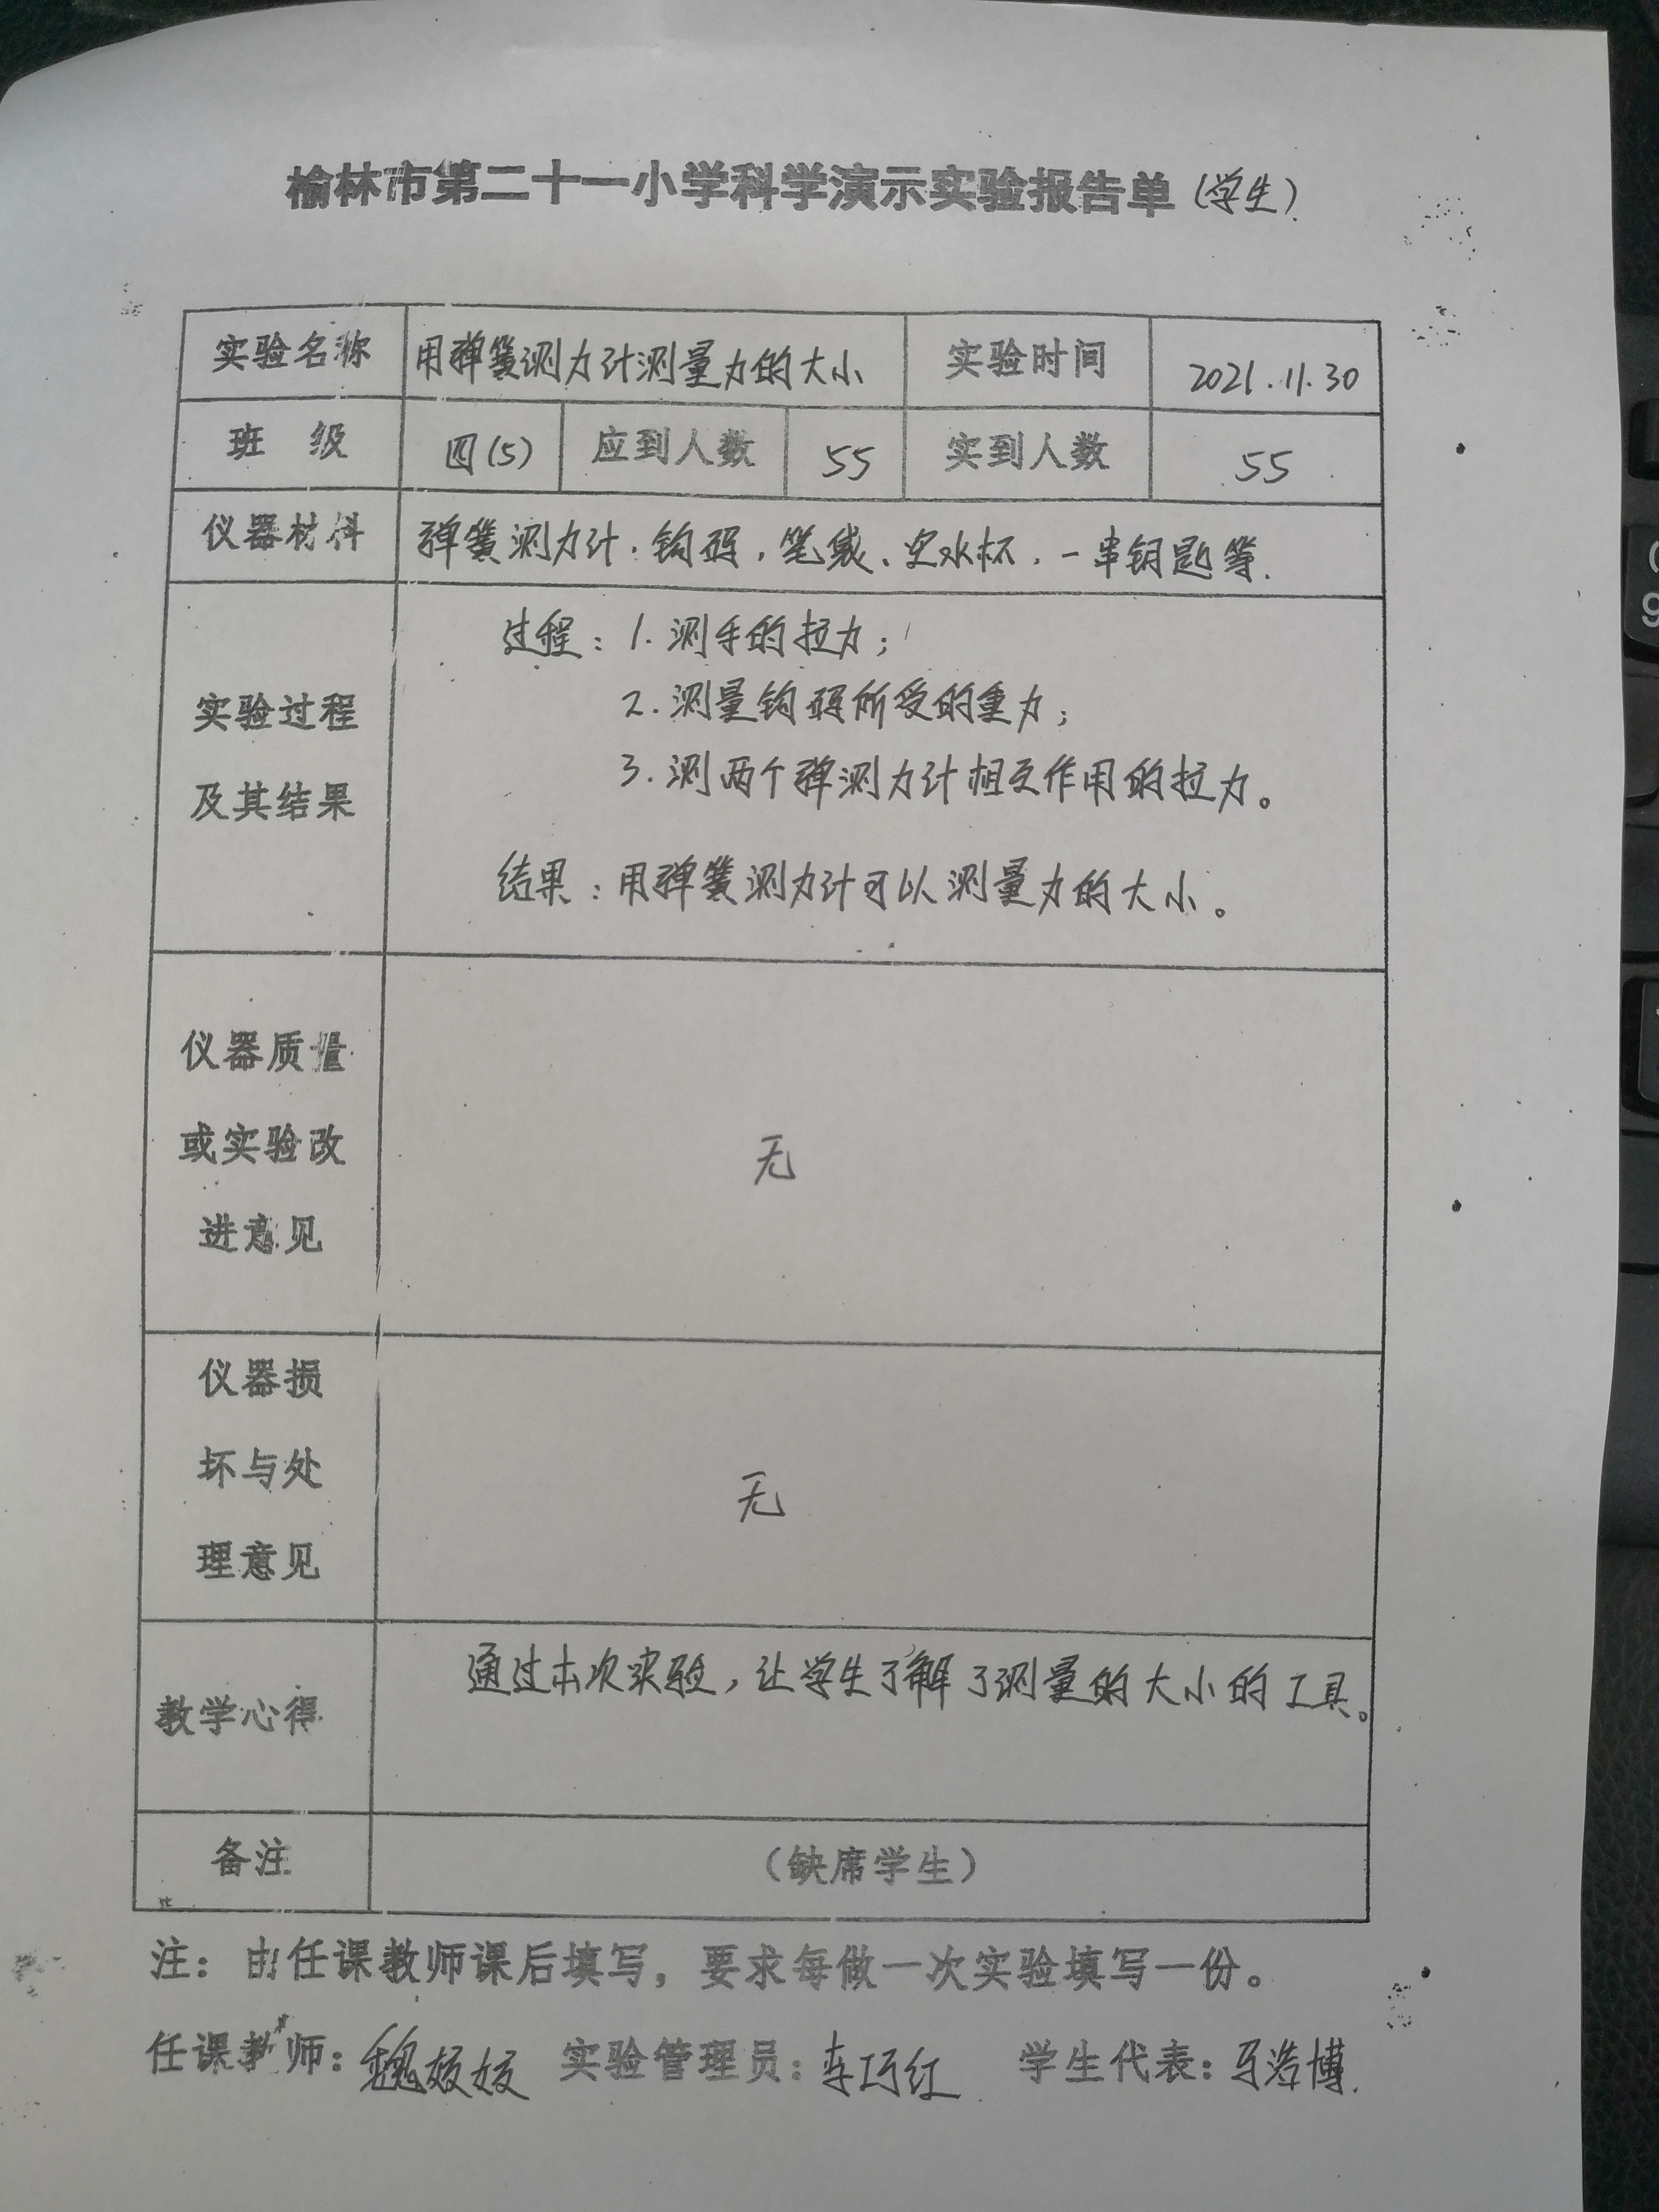 榆林市第二十一小学科学演示实验报告单(学生)
实验名称 用弹簧测力计测量力的大小 实验时间 2021.11.30
班 级 四(5) 应到人数 55 实到人数 55
仪器材料 弹簧测力计、钩码、笔袋、空水杯、一串钥匙等.
实验过程
及其结果
过程：1.测手的拉力；
2.测量钩码所受的重力；
3.测两个弹测力计相互作用的拉力。
结果：用弹簧测力计可以测量力的大小。
仪器质量
或实验改
进意见
无
仪器损
坏与处
理意见
无
教学心得 通过本次实验，让学生了解了测量的大小的工具。
备注 （缺席学生）
注：由任课教师课后填写，要求每做一次实验填写一份。
任课教师：魏姣姣 实验管理员：李巧红 学生代表：马浩博